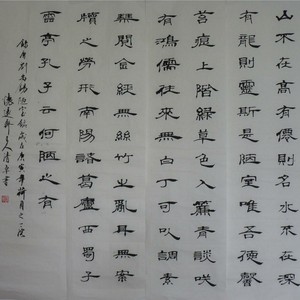 山不在高有仙則名水不在深
有龍則靈斯是陋室唯吾德馨
苔痕上階綠草色入簾青談咲
有鴻儒往來無白丁可以調素
琴閱金經無絲竹之亂耳無案
牘之勞形南陽諸葛廬西蜀子
雲亭孔子云何陋之有
錄唐劉禹錫陋室銘歲在庚寅年